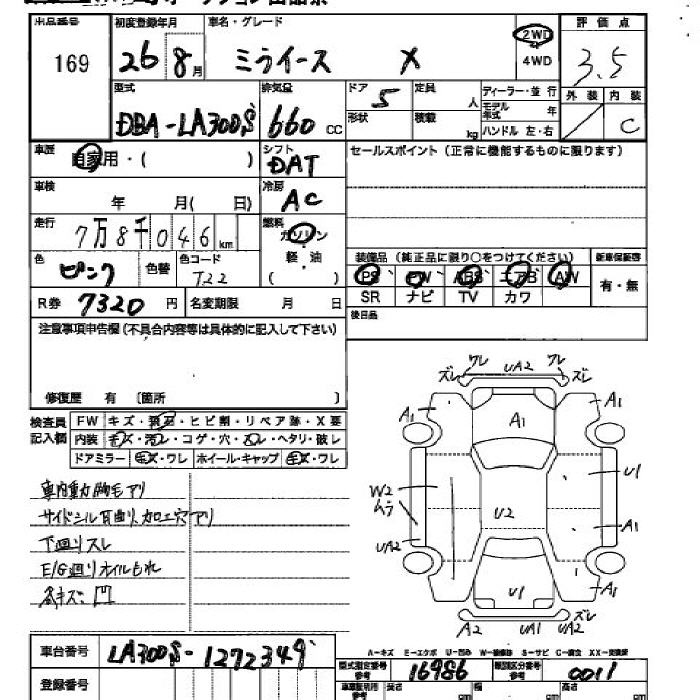 出品番号 初度登録年月 車名・グレード 2WD 評価点
169 26 8月 ミライース X 4WD 3.5
型式 排気量 ドア 5 定員 人 ディーラー・並行 外装 内装
モデル年式 年
DBA-LA300S 660 cc 形状 積載 kg ハンドル 左・右 C
車歴 自家用・( ) シフト DAT セールスポイント(正常に機能するものに限ります)
車検 年 月( 日) 冷房 AC
走行 7万8千046km 燃料 ガソリン
色 ピンク 色替 色コード T22 軽・油 ( )
装備品(純正品に限り○をつけてください) 新車保証書
PS PW ABS エアB AW 有・無
R券 7320円 名変期限 月 日 SR ナビ TV カワ
注意事項申告欄(不具合内容等は具体的に記入して下さい) 後日品
修復歴 有 〔箇所 〕
検査員記入欄 FW キズ・飛石・ヒビ割・リペア跡・X要
内装 キズ・汚レ・コゲ・穴・スレ・ヘタリ・破レ
ドアミラー キズ・ワレ ホイール・キャップ キズ・ワレ
ワレ UA2 ワレ
ズレ ズレ
A1 A1 A1
W2 ムラ U2 U1
UA2 A1
U1 A1
A2 U1 UA2 ズレ
車内動物毛アリ
サイドシル耳曲り、加工穴アリ
下廻りスレ
E/G廻りオイルもれ
各キズ・凹
A-キズ E-エクボ U-凹み W-補修跡 S-サビ C-腐食 XX-交換済
車台番号 LA300S-1272349 型式指定番号 参考 16986 類別区分番号 参考 0011
登録番号 長さ cm 幅 cm 高さ cm